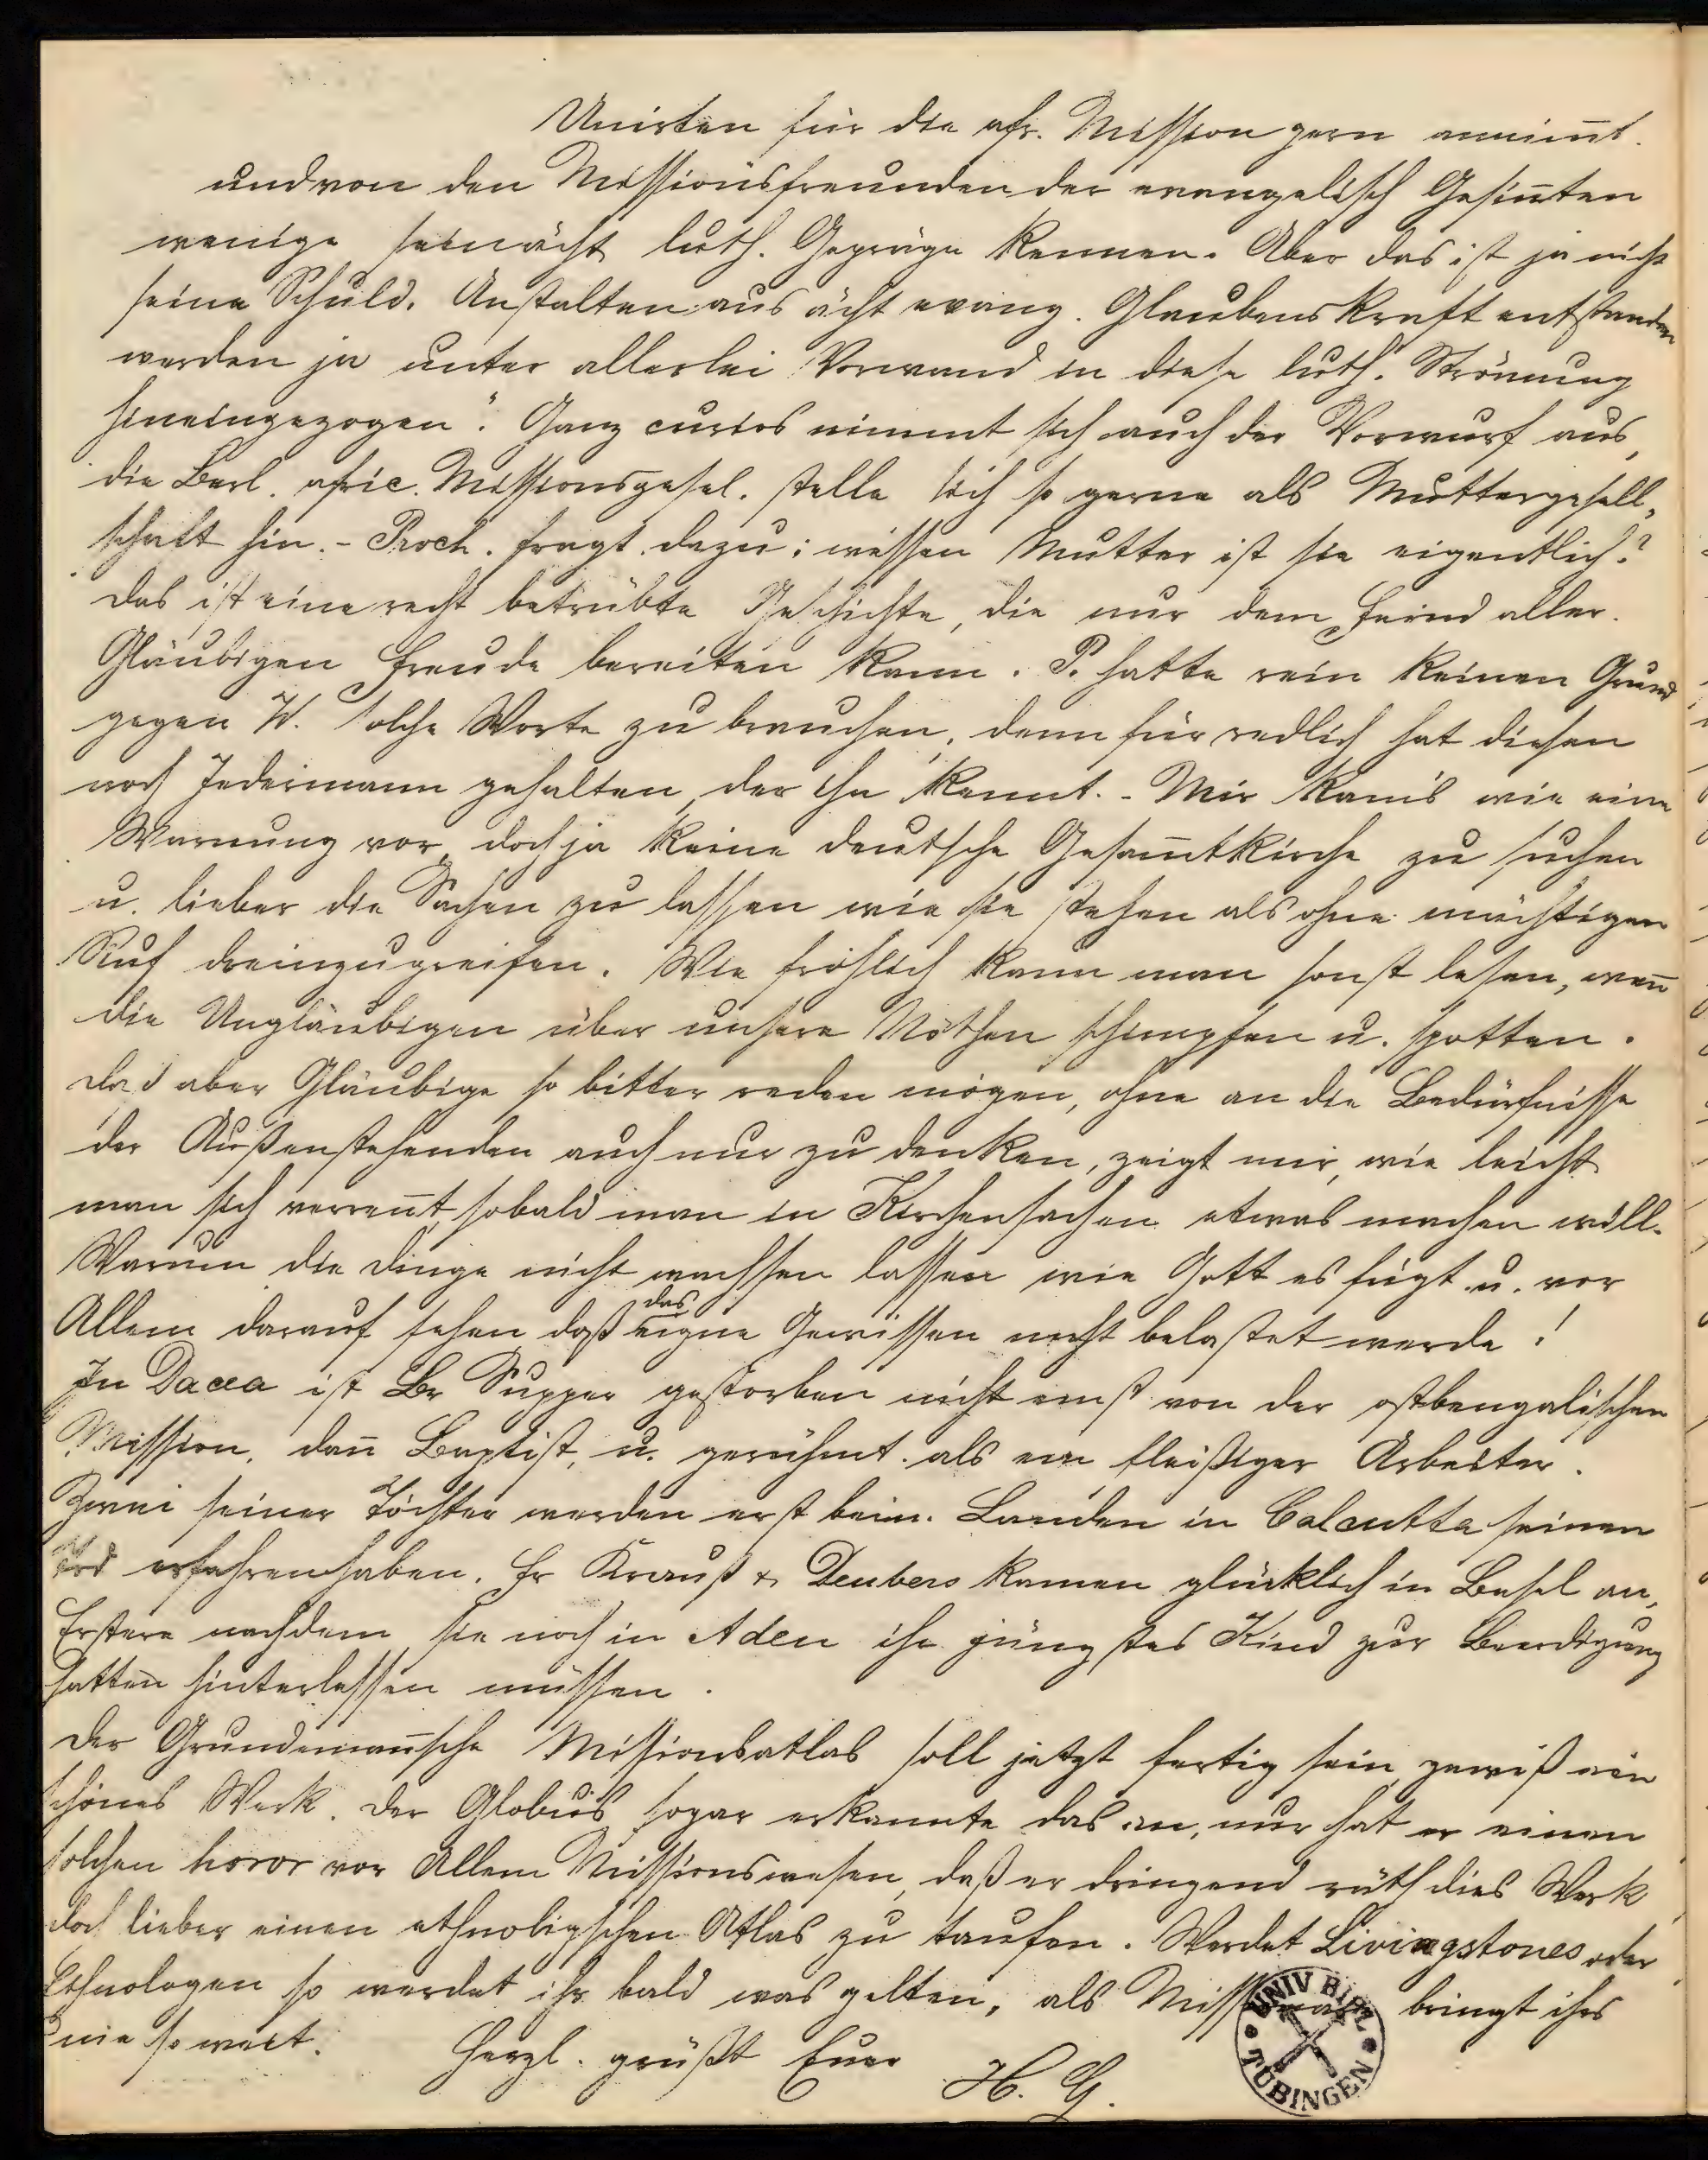 Unirten für die afr. Mission gern annim̄t.
und von den Missionsfreunden der evangelisch Gesin̄ten
wenige sein ächt luth. Gepräge kennen. Aber das ist ja nicht
seine Schuld. Anstalten aus ächt evang. Glaubenskraft entstanden
werden ja unter allerlei Vorwand in diese luth. Strömung
hineingezogen". Ganz curios nimmt sich auch der Vorwurf aus,
die Berl. afric. Missionsgesel. stelle sich so gerne als Muttergesell-
schaft hin. - Proch. fragt dazu: wessen Mutter ist sie eigentlich?
Das ist eine recht betrübte Geschichte, die nur dem Feind aller
Gläubigen Freude bereiten kann. P. hatte rein keinen Grund
gegen W. solche Worte zu brauchen, denn für redlich hat diesen
noch Jedermann gehalten, der ihn kennt. - Mir kam's wie eine
Warnung vor, doch ja keine deutsche Gesam̄tkirche zu suchen
u. lieber die Sachen zu lassen wie sie stehen als ohne mächtigen
Ruf dreinzugreifen. Wie fröhlich kann man sonst lesen, wen̄
die Ungläubigen über unsere Nöthen schimpfen u. spotten.
daß aber Gläubige so bitter reden mögen, ohne an die Bedürfnisse
der Außenstehenden auch nur zu denken, zeigt mir, wie leicht
man sich verren̄t, sobald man in Kirchensachen etwas machen will.
Warum die Dinge nicht wachsen lassen wie Gott es fügt u. vor
Allem darauf sehen daß das eigne Gewissen nicht belastet werde!
In Dacca ist Br Supper gestorben nicht einst von der ostbengalischen
Mission, dan̄ Baptist, u. gerühmt als ein fleißiger Arbeiter.
Zwei seiner Töchter werden erst beim Landen in Calcutta seinen
Tod erfahren haben. Fr Krauß & Deubers kamen glücklich in Basel an,
Erstere nachdem sie noch in Aden ihr jüngstes Kind zur Beerdigung
hatten hinterlassen müssen.
Der Grundeman̄sche Missionsatlas soll jetzt fertig sein, gewiß ein
schönes Werk. Der Globus sogar erkannte das an, nur hat er einen
solchen horor vor Allem Missionswesen, daß er dringend räth dies Werk
doch lieber einen ethnoligschen Atlas zu taufen. Werdet Livingstones oder
Ethnologen so werdet ihr bald was gelten, als bringt ihrs
nie so weit. Herzl. grüßt Euer H. G.
UNIV BIBL
TÜBINGEN